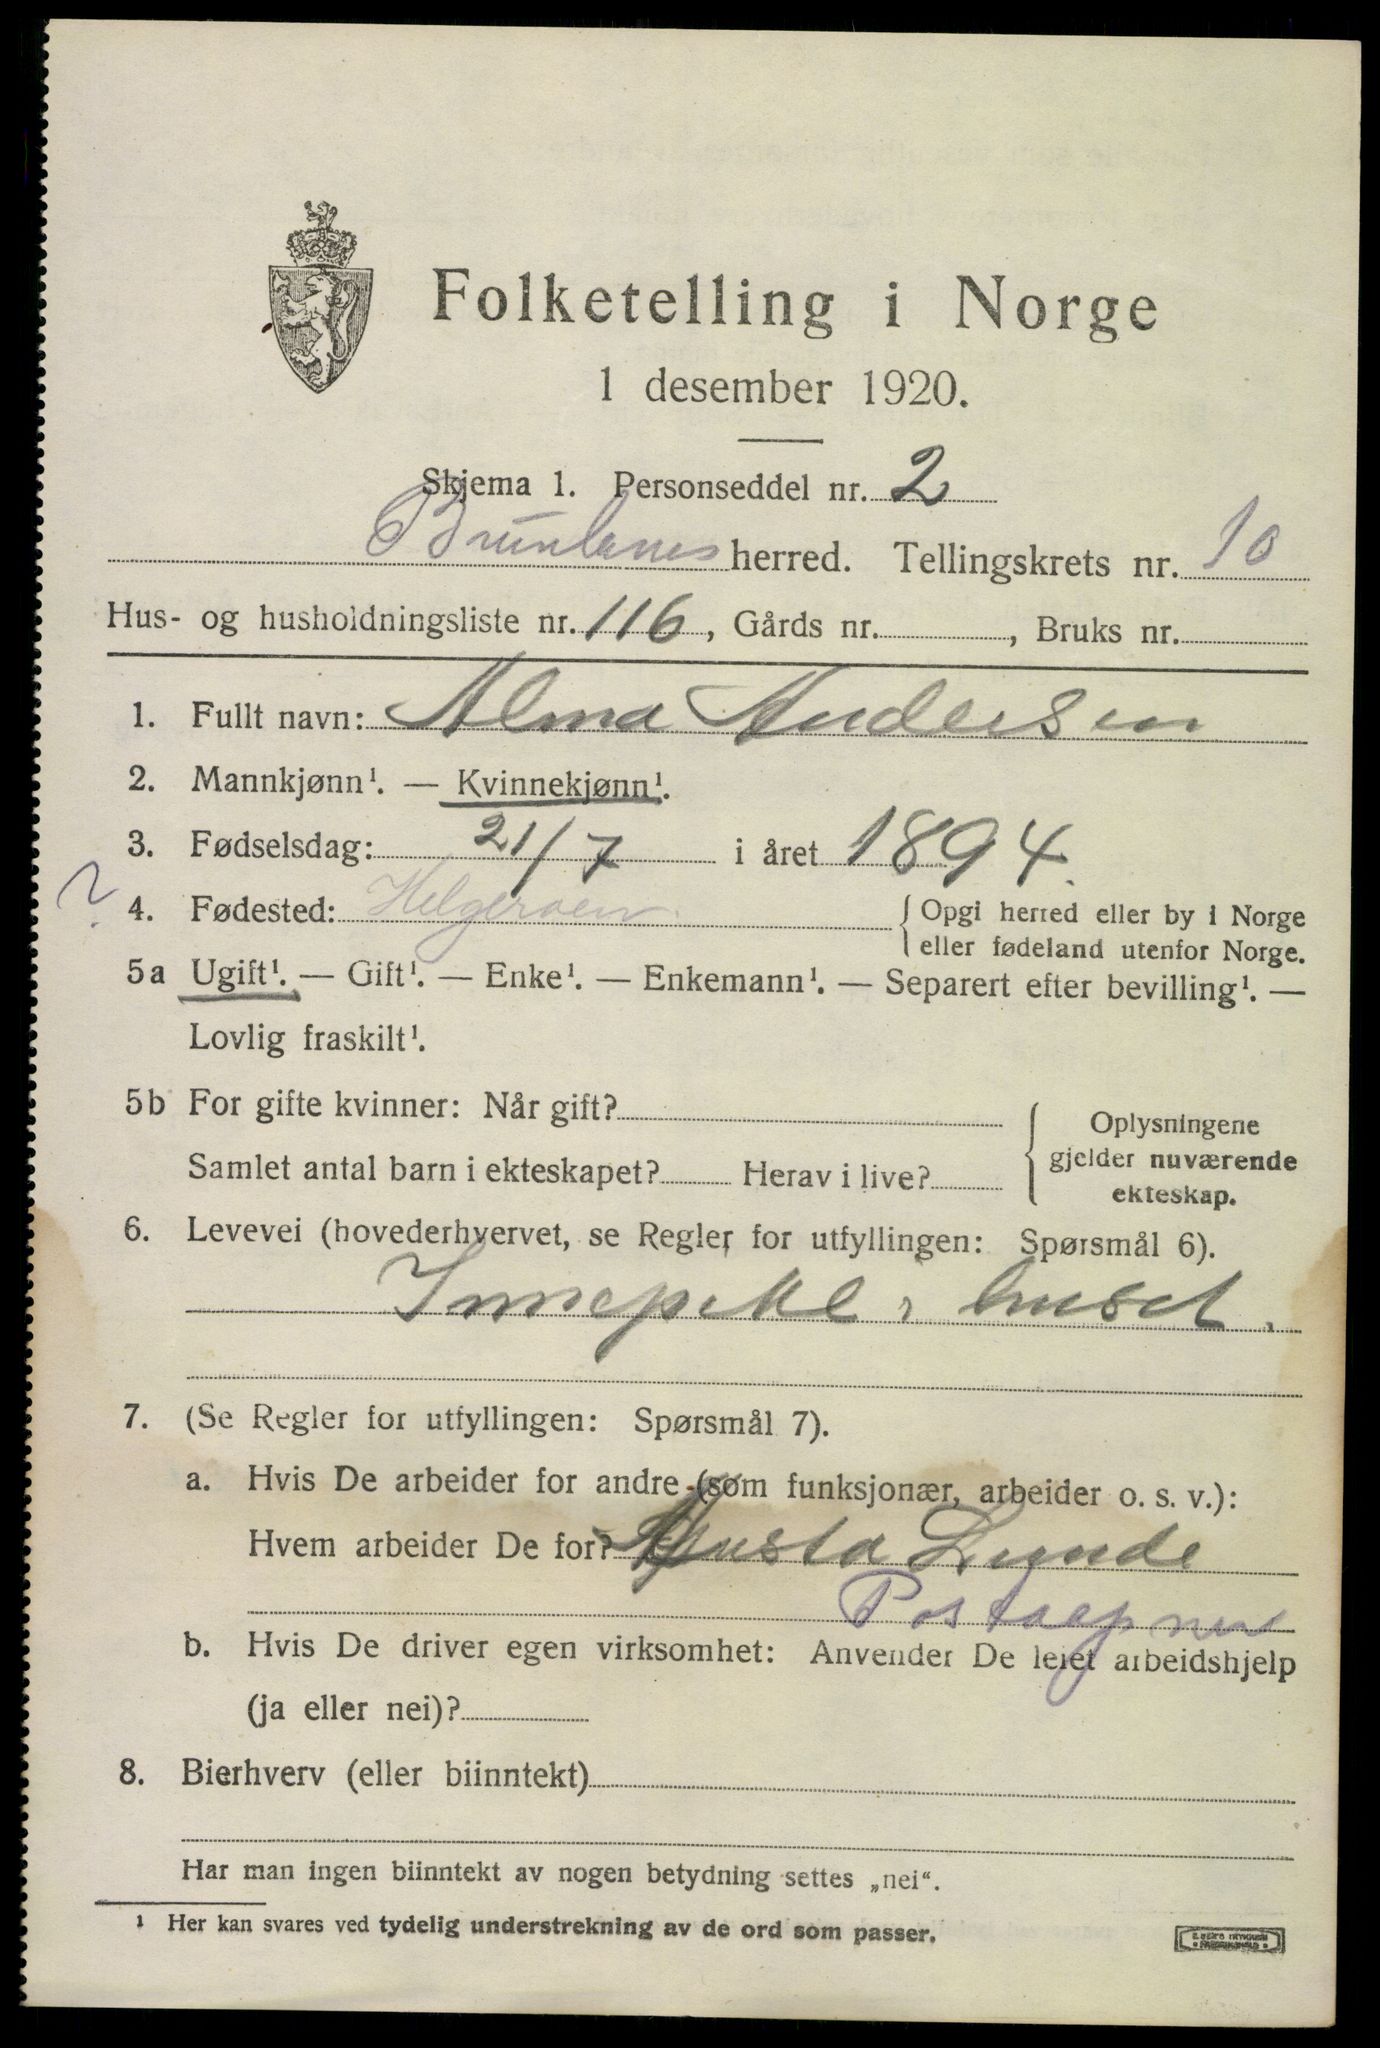 Folketelling i Norge
1 desember 1920.
Skjema 1. Personseddel nr. 2
Brunlanes herred. Tellingskrets nr. 10
Hus- og husholdningsliste nr. 116, Gårds nr. , Bruks nr.
1. Fullt navn: Alma Andersen
2. Mannkjønn¹. — Kvinnekjønn¹.
3. Fødselsdag: 21/7 i året 1894.
? 4. Fødested: Helgeroen. { Opgi herred eller by i Norge
eller fødeland utenfor Norge.
5a Ugift¹. — Gift¹. — Enke¹. — Enkemann¹. — Separert efter bevilling¹. —
Lovlig fraskilt¹.
5b For gifte kvinner: Når gift?
Samlet antal barn i ekteskapet? Herav i live?
{ Oplysningene
gjelder nuværende
ekteskap.
6. Levevei (hovederhvervet, se Regler for utfyllingen: Spørsmål 6).
Innepike i huset.
7. (Se Regler for utfyllingen: Spørsmål 7).
a. Hvis De arbeider for andre (som funksjonær, arbeider o. s. v.):
Hvem arbeider De for? Lunde
Postaapner
b. Hvis De driver egen virksomhet: Anvender De leiet arbeidshjelp
(ja eller nei)?
8. Bierhverv (eller biinntekt)
Har man ingen biinntekt av nogen betydning settes „nei“.
¹ Her kan svares ved tydelig understrekning av de ord som passer.